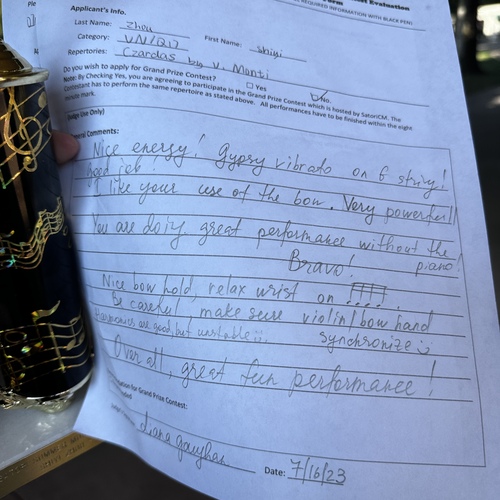 Evaluation
Form
REQUIRED INFORMATION WITH BLACK PEN)
Applicant's Info.
Last Name: Zhou
First Name: Shiyi
Category: VN/Q17
Repertories: Czardas by V. Monti
Do you wish to apply for Grand Prize Contest? Yes No.
Note: By Checking Yes, you are agreeing to participate in the Grand Prize Contest which is hosted by SatoriCM. The
Contestant has to perform the same repertoire as stated above. All performances have to be finished within the eight
minute mark.
Use Only)
Comments:
Nice energy! Gypsy vibrato on G string!
good job!
I like your use of the bow. Very powerful!
You are doiy great performance without the
piano!
Bravo!
Nice bow hold, relax wrist on
Be careful, make sure violin/bow hand
synchronize
Harmonics are good, but unstable
Over all, great fun performance!
for Grand Prize Contest:
Date: 7/16/23